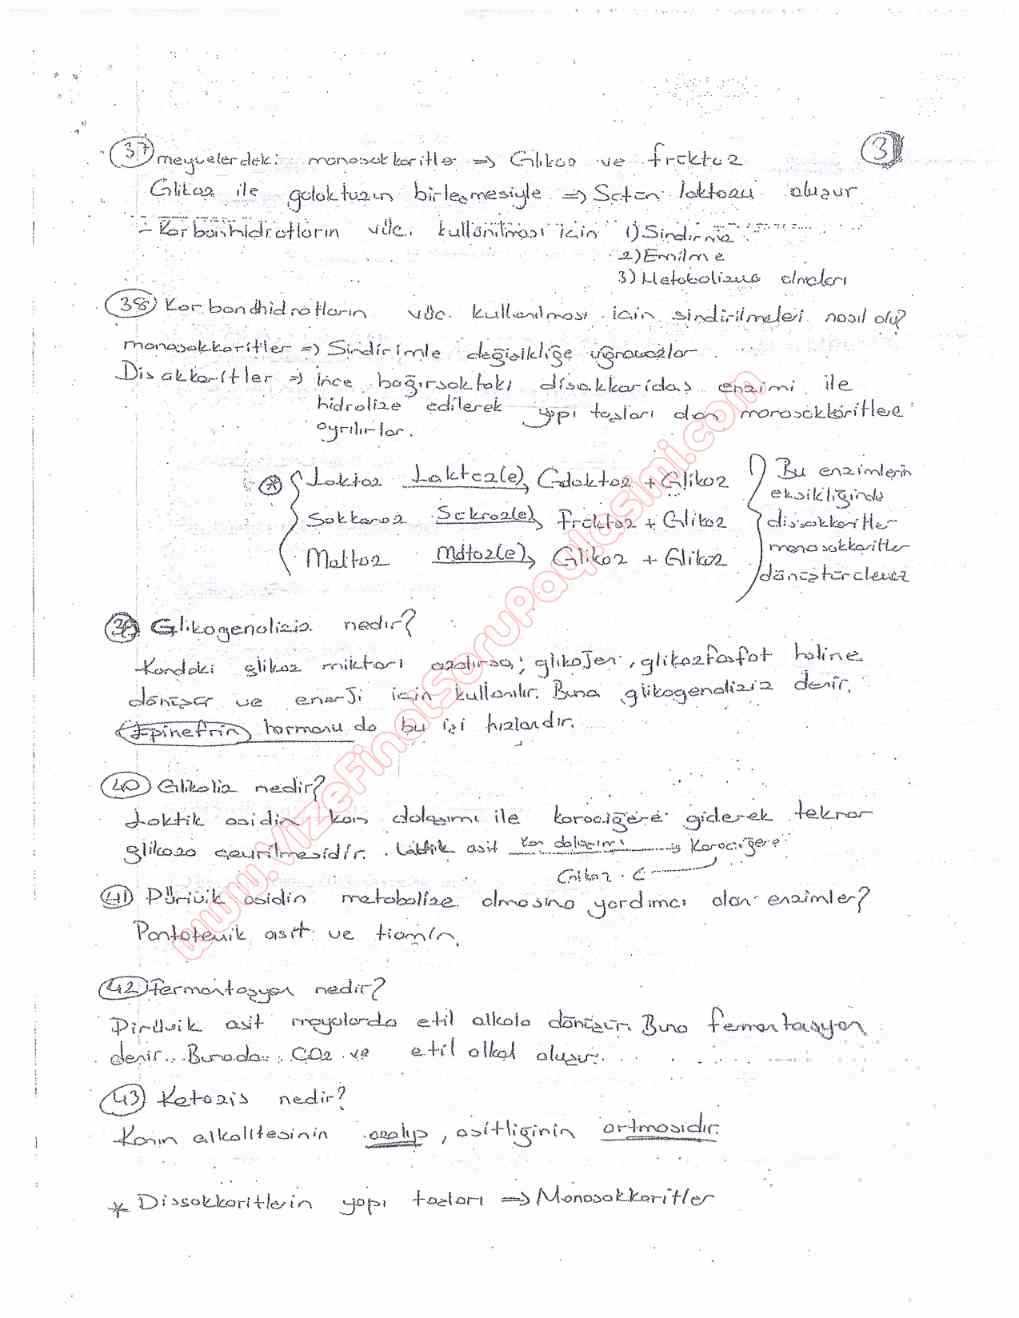 3
37 meyvelerdeki monosakkaritler => Glikoz ve früktoz
Glikoz ile galaktozun birleşmesiyle => Sütün laktozu oluşur
- Karbonhidratların vüc. kullanılması için 1) Sindirme
2) Emilme
3) Metabolizma olmaları
38 Karbondhidratların vüc. kullanılması için sindirilmeleri nasıl olu?
monosakkaritler => Sindirimle değişikliğe uğramazlar.
Disakkaritler => ince bağırsaktaki disakkaridas enzimi ile
hidrolize edilerek yapı taşları olan monosakkaritlere
ayrılırlar.
* Laktoz Laktaz(e) Galaktoz + Glikoz
Sakkaroz Sakraz(e) Früktoz + Glikoz
Maltoz Maltaz(e) Glikoz + Glikoz
Bu enzimlerin
eksikliğinde
dissakkaritler
monosakkaritler
dönüştürülemez
39 Glikogenolizis nedir?
Kandaki glikoz miktarı azalırsa; glikojen, glikozfosfat haline
dönüşür ve enerji için kullanılır. Buna glikogenolizis denir.
Epinefrin hormonu da bu işi hızlandır.
40 Glikoliz nedir?
Laktik asidin kan dolaşımı ile karaciğere giderek tekrar
glikoza çevrilmesidir. Laktik asit kan dolaşımı -> Karaciğere
Glikoz <-
41 Pürivik asidin metabolize olmasına yardımcı olan enzimler?
Pantotenik asit ve tiamin.
42 Fermantasyon nedir?
Pirüvik asit mayalarda etil alkole dönüşür. Buna fermantasyon
denir. Burada CO2 ve etil alkol oluşur.
43 Ketozis nedir?
Kanın alkalitesinin azalıp, asitliğinin artmasıdır.
* Dissakkaritlerin yapı taşları => Monosakkaritler
www.VizeFinalSoruPaylasimi.com